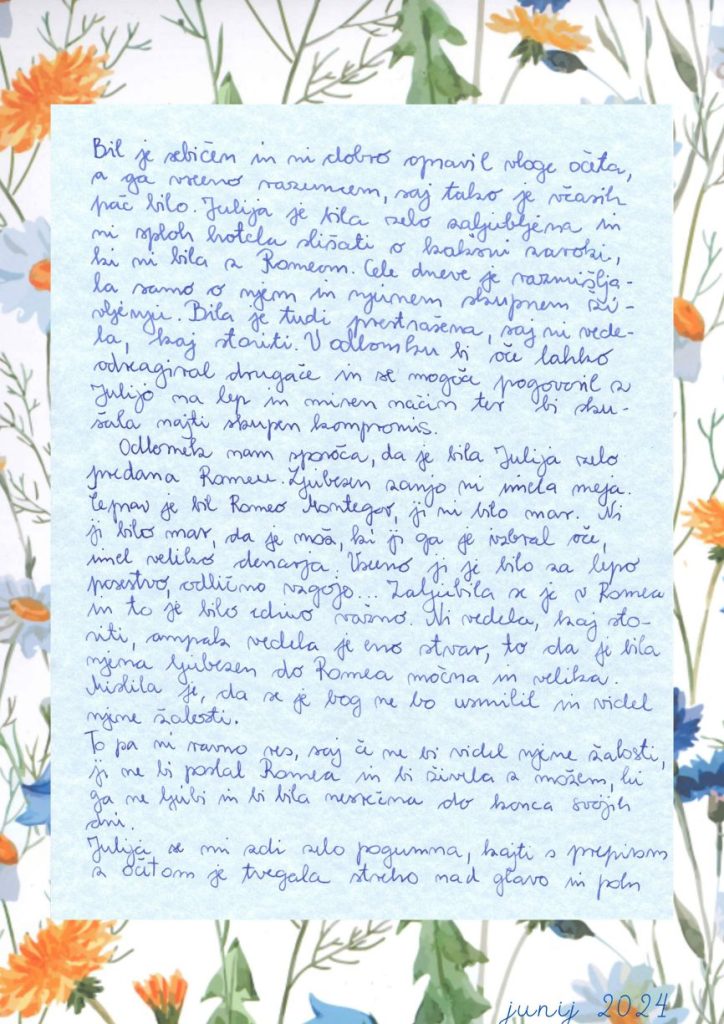 Bil je sebičen in ni dobro opravil vloge očeta,
a ga vseeno razumem, saj tako je včasih
pač bilo. Julija je bila zelo zaljubljena in
ni sploh hotela slišati o kakšni zaroki,
ki ni bila z Romeom. Cele dneve je razmišlja-
la samo o njem in njunem skupnem živ-
vljenju. Bila je tudi prestrašena, saj ni vede-
la, kaj storiti. V odlomku bi oče lahko
odreagiral drugače in se mogoče pogovoril z
Julijo na lep in miren način ter bi sku-
šala najti skupen kompromis.
Odlomek nam sporoča, da je bila Julija zelo
predana Romeu. Ljubezen zanjo ni imela meja.
Čeprav je bil Romeo Montegov, ji ni bilo mar. Ni
ji bilo mar, da je mož, ki ji ga je izbral oče,
imel veliko denarja. Vseeno ji je bilo za lepo
posestvo, odlično vzgojo... Zaljubila se je v Romea
in to je bilo edino važno. Ni vedela, kaj sto-
riti, ampak vedela je eno stvar, to da je bila
njena ljubezen do Romea močna in velika.
Mislila je, da se je bog ne bo usmilil in videl
njene žalosti.
To pa ni ravno res, saj če ne bi videl njene žalosti,
ji ne bi poslal Romea in bi živela z možem, ki
ga ne ljubi in bi bila nesrečna do konca svojih
dni.
Julija se mi zdi zelo pogumna, kajti s prepirom
z očetom je tvegala streho nad glavo in poln
junij 2024